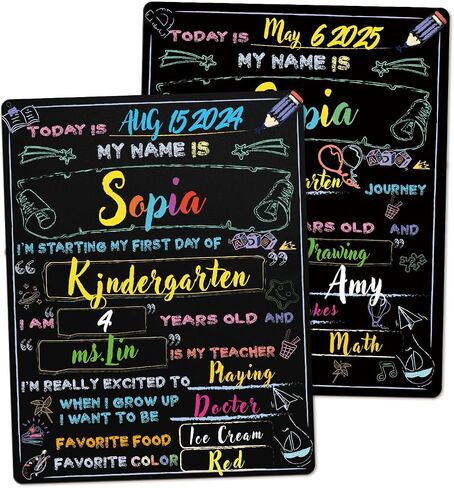 TODAY IS AUG 15 2024
MY NAME IS
Sopia
I'M STARTING MY FIRST DAY OF
Kjndergarten
I AM 4 YEARS OLD AND
ms.Lin IS MY TEACHER
I'M REALLY EXCITED TO Playing
WHEN I GROW UP
I WANT TO BE Docter
FAVORITE FOOD Ice Cream
FAVORITE COLOR Red
TODAY IS May 6 2025
MY NAME IS
pia
arten JOURNEY
ARS OLD AND
Trawing
Amy
kes
Math